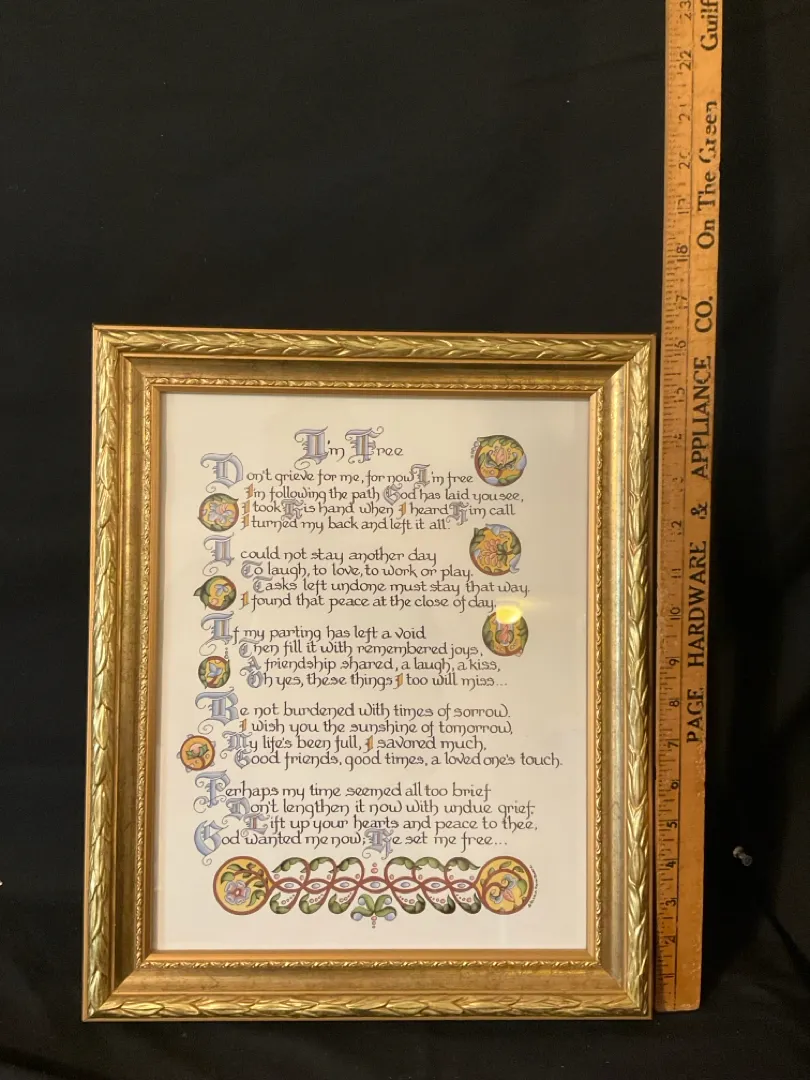 I'm Free
Don't grieve for me, for now I'm free
I'm following the path God has laid you see,
I took His hand when I heard Him call
I turned my back and left it all.
I could not stay another day
To laugh, to love, to work or play.
Tasks left undone must stay that way.
I found that peace at the close of day.
If my parting has left a void
Then fill it with remembered joys,
A friendship shared, a laugh, a kiss,
Oh yes, these things I too will miss...
Be not burdened with times of sorrow.
I wish you the sunshine of tomorrow,
My life's been full, I savored much,
Good friends, good times, a loved one's touch.
Perhaps my time seemed all too brief
Don't lengthen it now with undue grief,
Lift up your hearts and peace to thee,
God wanted me now; He set me free...
PAGE HARDWARE & APPLIANCE CO. On The Green Guilf
2 3 4 5 6 7 8 9 10 11 12 14 15 16 17 18 20 22 23